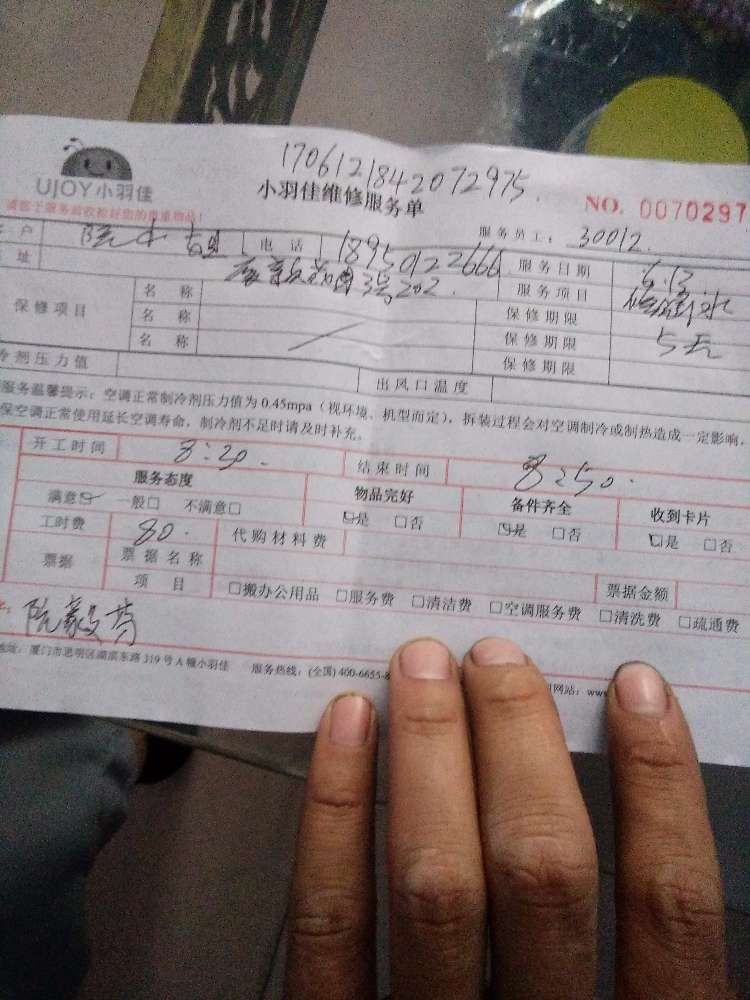 1706121842072975.
UJOY小羽佳
小羽佳维修服务单
NO. 0070297
请您于服务前收检好您的贵重物品!
服务员工: 30012.
户 阮小姐 电话 18950122666 服务日期 6.13
址 3号202. 服务项目
保修项目 名称 保修期限
名称 保修期限 5天
名称 保修期限
冷剂压力值 出风口温度
服务温馨提示:空调正常制冷剂压力值为0.45mpa(视环境、机型而定),拆装过程会对空调制冷或制热造成一定影响,
保空调正常使用延长空调寿命,制冷剂不足时请及时补充。
开工时间 8:20. 结束时间 8:50.
服务态度 物品完好 备件齐全 收到卡片
满意☑ 一般□ 不满意□ ☑是 □否 ☑是 □否 ☑是 □否
工时费 80. 代购材料费
票据 票据名称
项目 □搬办公用品 □服务费 □清洁费 □空调服务费 □清洗费 □疏通费 票据金额
阮毅芳
地址:厦门市思明区湖滨东路319号A幢小羽佳 服务热线:(全国)400-6655-8 网站:www